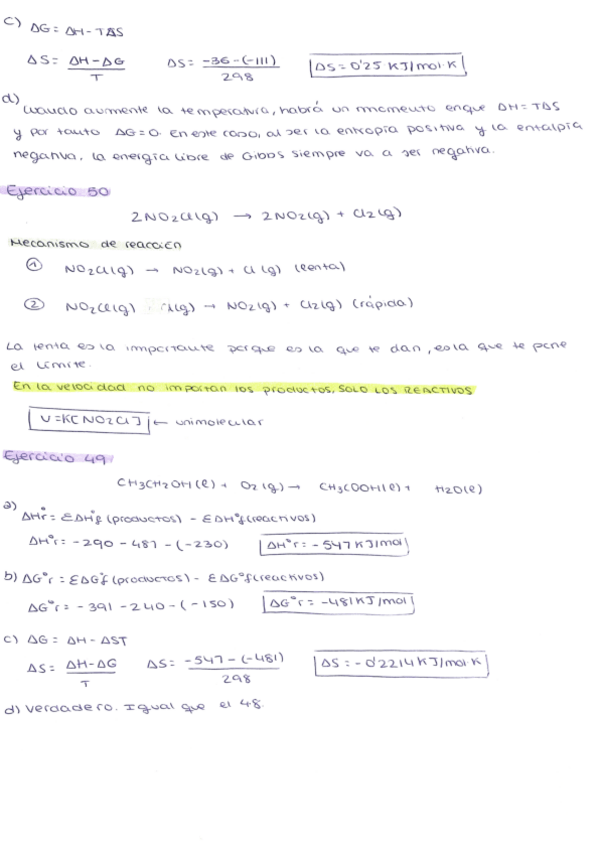 c) ΔG = ΔH - TΔS
ΔS = ΔH-ΔG / T    ΔS = -36-(-111) / 298    ΔS = 0'25 KJ/mol·K
d) Cuando aumente la temperatura, habrá un momento en que ΔH = TΔS
y por tanto ΔG = 0. En este caso, al ser la entropía positiva y la entalpía
negativa, la energía libre de Gibbs siempre va a ser negativa.
Ejercicio 50
2NO2Cl(g) → 2NO2(g) + Cl2(g)
Mecanismo de reacción
① NO2Cl(g) → NO2(g) + Cl(g) (lenta)
② NO2Cl(g) (g) → NO2(g) + Cl2(g) (rápida)
La lenta es la importante porque es la que te dan, es la que te pone
el límite.
En la velocidad no importan los productos, SOLO LOS REACTIVOS
V = K[NO2Cl] ← unimolecular
Ejercicio 49
CH3CH2OH(l) + O2(g) → CH3COOH(l) + H2O(l)
a)
ΔH°r = ΣΔH°f (productos) - ΣΔH°f (reactivos)
ΔH°r = -290 - 487 - (-230)    ΔH°r = -547 KJ/mol
b) ΔG°r = ΣΔG°f (productos) - ΣΔG°f (reactivos)
ΔG°r = -391 - 240 - (-150)    ΔG°r = -481 KJ/mol
c) ΔG = ΔH - ΔST
ΔS = ΔH-ΔG / T    ΔS = -547-(-481) / 298    ΔS = -0'2214 KJ/mol·K
d) Verdadero. Igual que el 48.